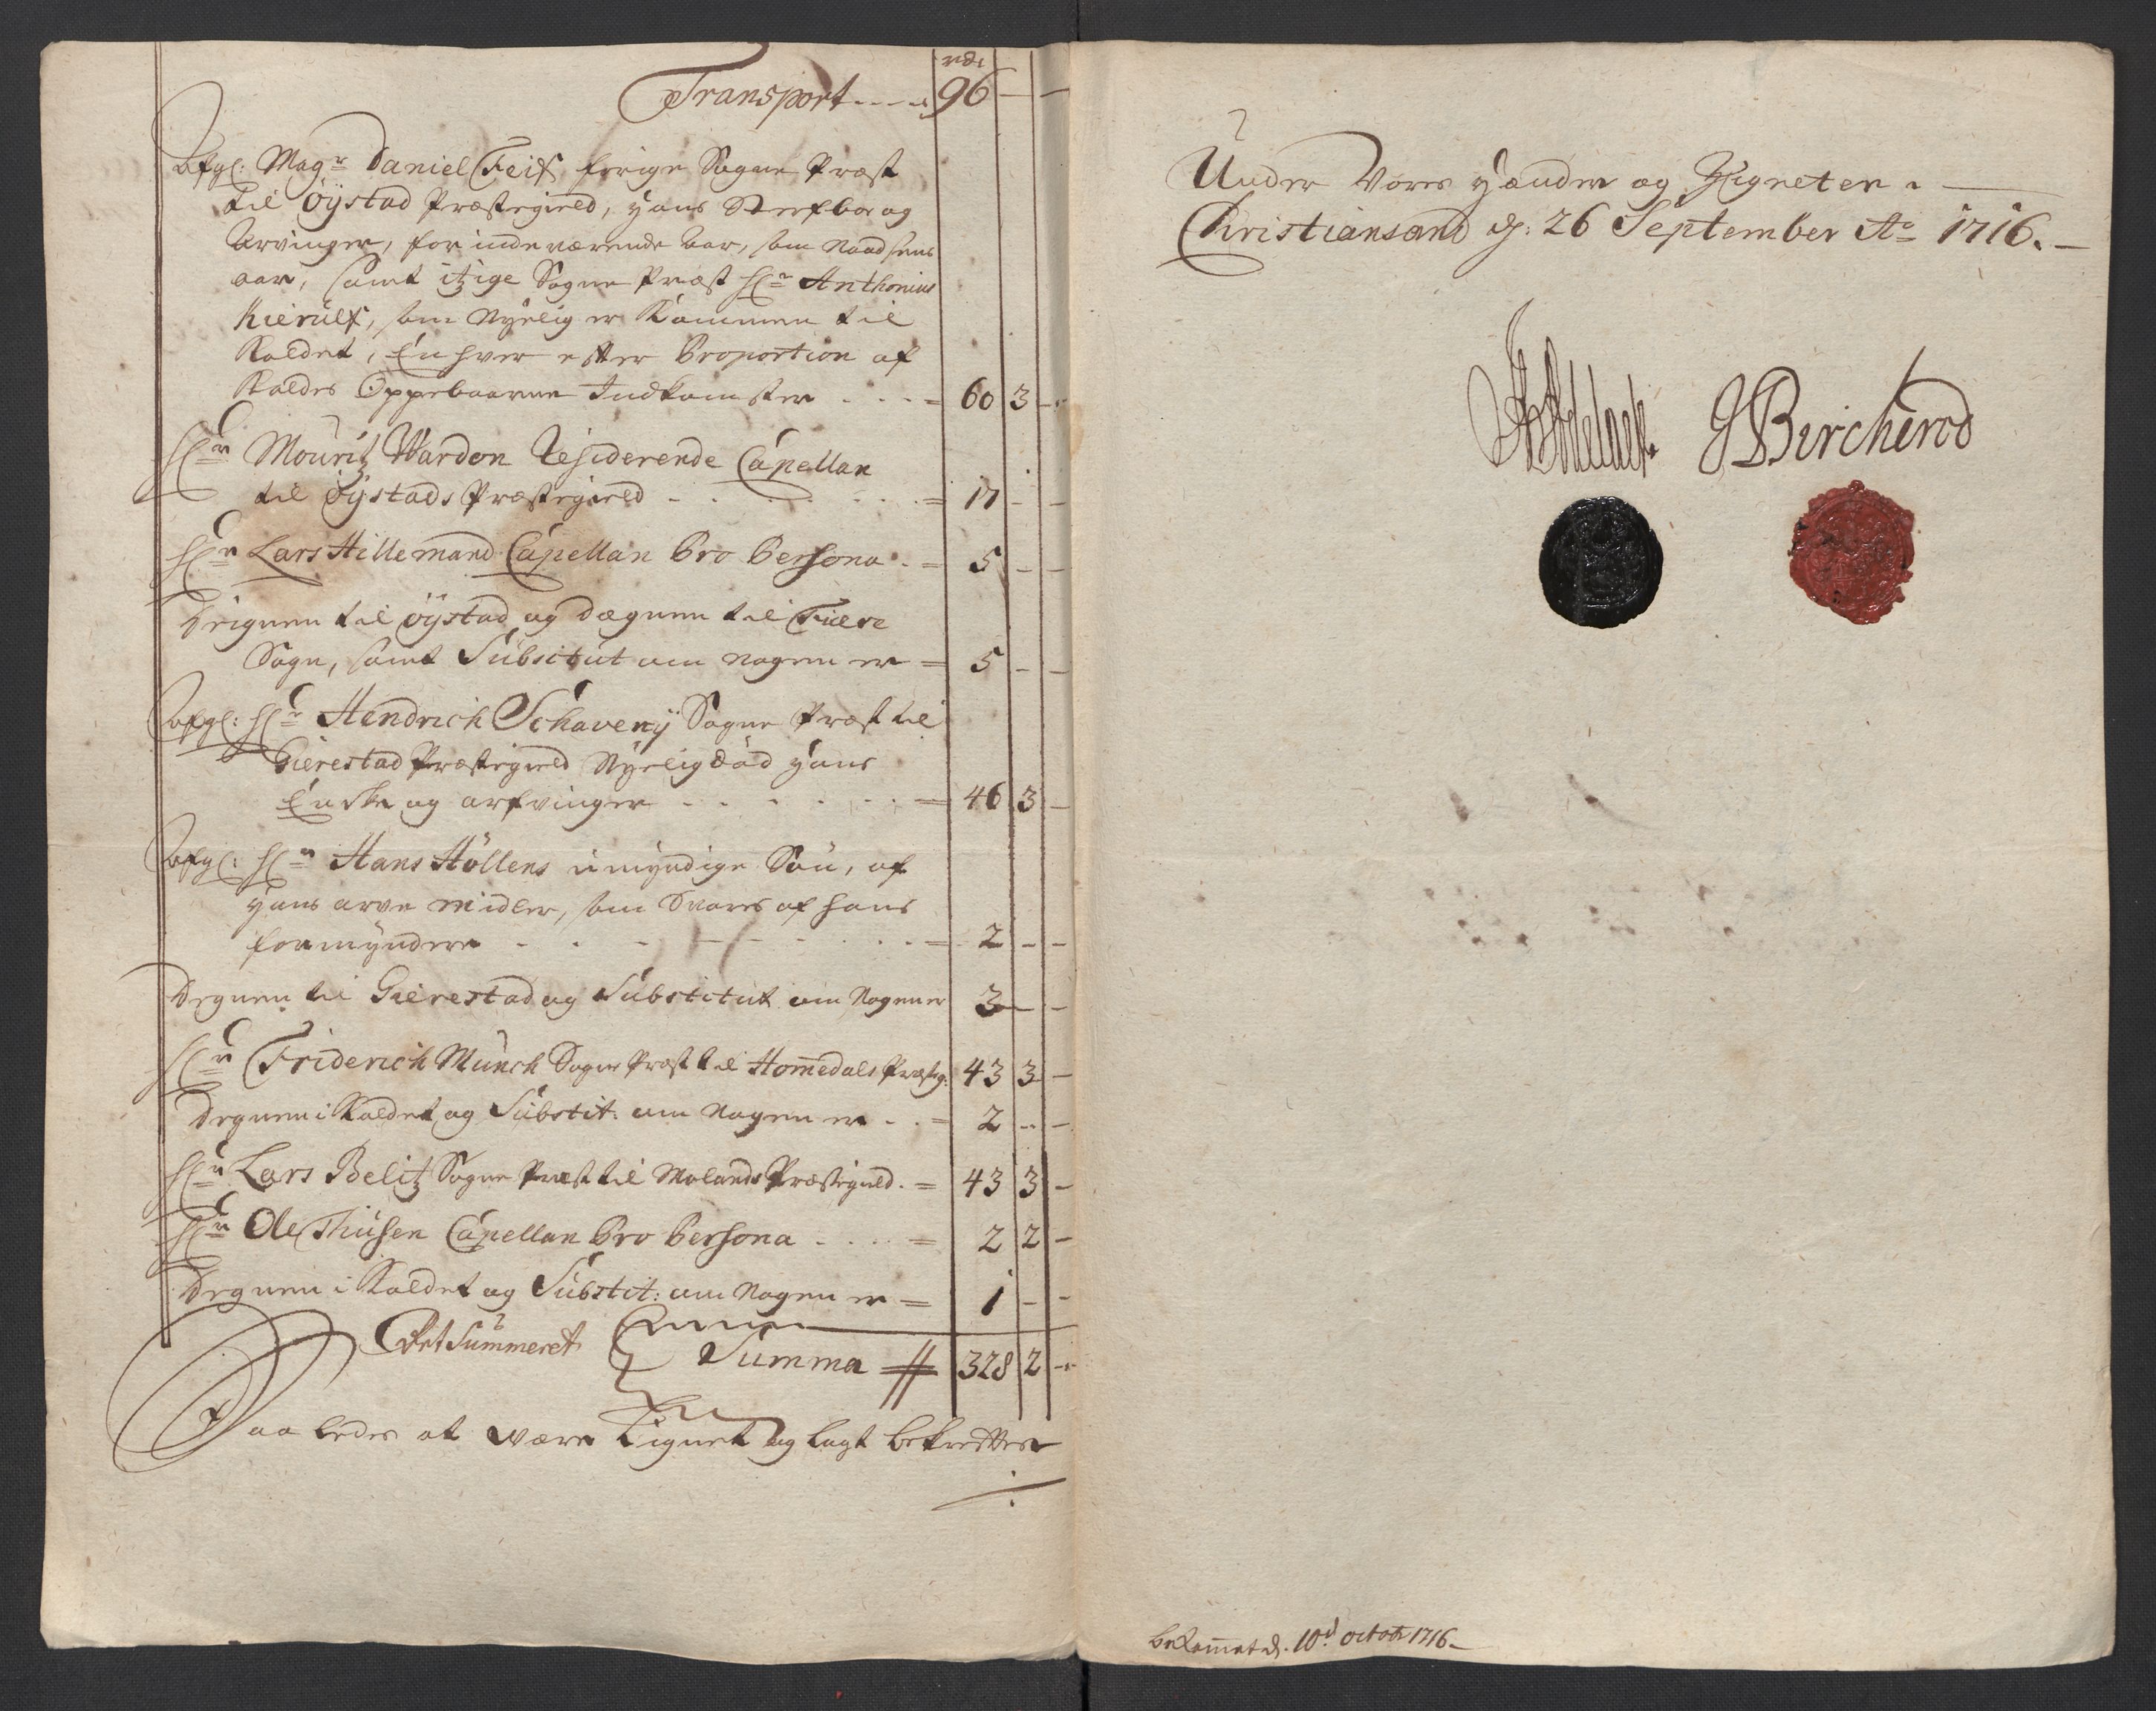 rdr
Transport - - - - 96 — —
Afgl: Magr Daniel Feif forige Sogne Præst
til Öÿstad Præstegield, hans Sterfboe og
Arvinger, for indeværende Aar, som Naadsens
aar, samt itzige Sogne Præst Hr Anthonius
Kierulf, som Nyelig er Kommen til
Kaldet, Enhver efter Proportion af
Kaldes Oppebaarne Indkomster - - - = 60 3 -
Hr Mouritz Wardon Residerende Capellan
til Öÿstads Præstegield - - - - = 17 - -
Hr Lars Hillemand Capellan Pro Persona - = 5 - -
Deignen til Öÿstad og Dægnen til Fiere
Sogn, samt Subsitut om nogen er = 5 - -
Afgl: Hr Hendrich Schavenÿ Sogne Præst til
Gierestad Præstegield Nyelig död hans
Encke og arfvinger - - - - - = 46 3 -
Afgl: Hr Hans Höllens umyndige Sön, af
hans arve midler, som Svares af hans
formyndere - - - - - - = 2 - -
Degnen til Gierestad og Substitut om Nogen er 3 - -
Hr Friderich Münch Sogne Præst til Homedals Præsteg: 43 3 -
Degnen i Kaldet og Substit: om Nogen er - - = 2 - -
Hr Lars Belitz Sogne Præst til Molands Præstegield - = 43 3 -
Hr Ole Thuesen Capellan Pro Persona - - - = 2 2 -
Degnen i Kaldet og Substit: om Nogen er = 1 - -
Ret Summeret Summa 328 2 -
Saaledes at være Lignet og lagt bekrefter
Under Vores Hænder og Signeter.
Christiansand d: 26 September Ao 1716.
J Bircherod
bekommet d. 10d octobr 1716